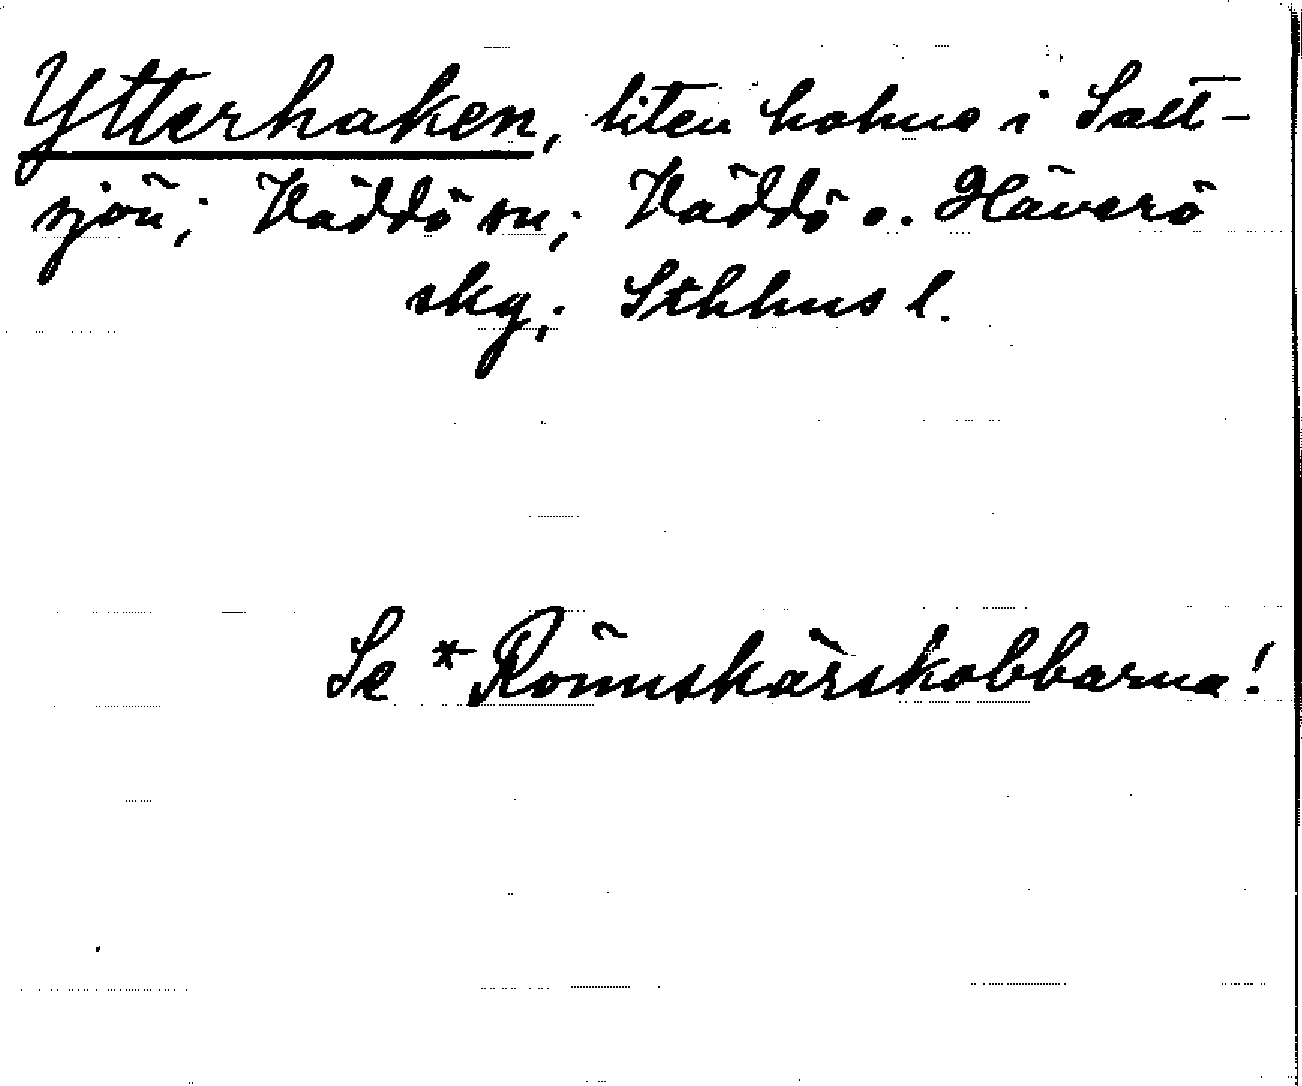 Ytterhaken, liten holme i Salt-
sjön; Väddö sn; Väddö o. Häverö
skg; Sthlms l.
Se *Rönnskärskobbarna!